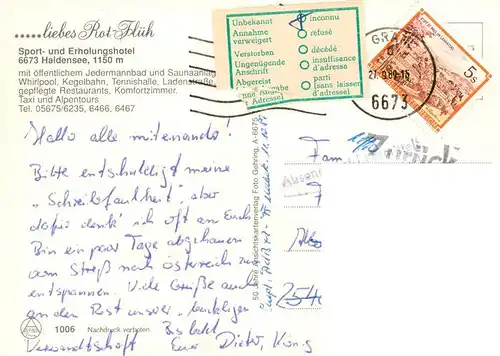 .....liebes Rot-Flüh
Sport- und Erholungshotel
6673 Haldensee, 1150 m
mit öffentlichem Jedermannbad und Saunaanlage
Whirlpool, Kegelbahn, Tennishalle, Ladenstraße
gepflegte Restaurants, Komfortzimmer.
Taxi und Alpentours
Tel. 05675/6235, 6466, 6467
Unbekannt inconnu
Annahme verweigert refusé
Verstorben décédé
Ungenügende Anschrift insuffisance d'adresse
Abgereist parti
ohne Angabe (sans laisser
d'Adresse) d'adresse)
GRÄN
6673
5 S
Hallo alle miteinander!
Bitte entschuldigt meine
„Schreibfaulheit“, aber
dafür denk' ich oft an Euch
Bin ein paar Tage abgehauen
vom Streß nach Österreich zum
entspannen. Viele Grüße auch
an den Rest unserer „buckligen
Verwandtschaft Bis bald
Euer Dieter, König
50 Jahre Ansichtskartenverlag Foto Gehring, A-6675
Fam
Zurück
Absend
254
1006 Nachdruck verboten.